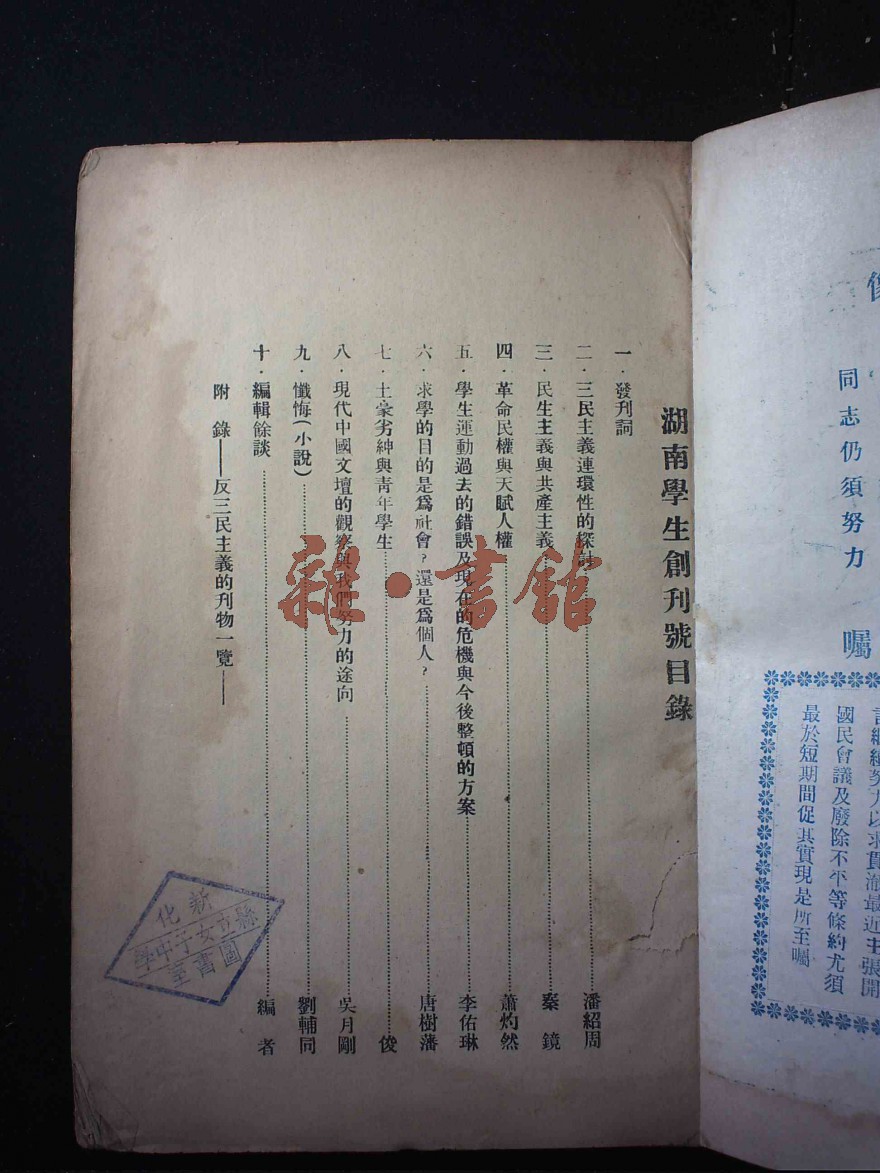 湖南學生創刊號目錄
一．發刊詞
二．三民主義連環性的探討……潘紹周
三．民生主義與共產主義……秦鏡
四．革命民權與天賦人權……蕭灼然
五．學生運動過去的錯誤及現在的危機與今後整頓的方案……李佑琳
六．求學的目的是爲社會？還是爲個人？……唐樹藩
七．土豪劣紳與青年學生……俊
八．現代中國文壇的觀察與我們努力的途向……吳月剛
九．懺悔（小說）……劉輔同
十．編輯餘談……編者
附錄——反三民主義的刊物一覽——
雜·書館
新化
縣立女子中學
圖書室
像
同志仍須努力
囑
最近主張開
國民會議及廢除不平等條約尤須
最於短期間促其實現是所至囑